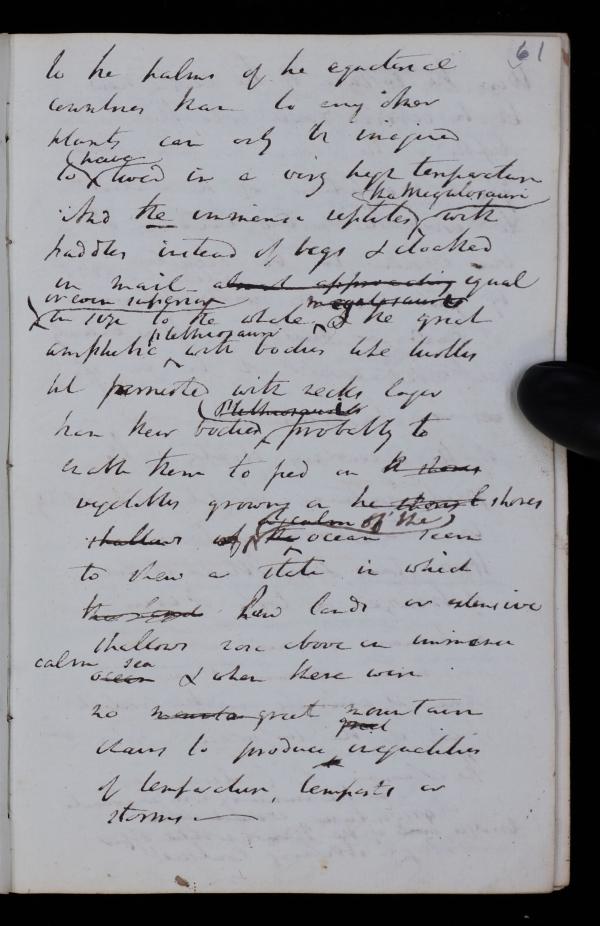 61
to the palms of the equatorial
countries than to any other
plants can only be imagined
to have lived in a very high temperature
And the immense reptiles the Megalosauri with
paddles instead of legs & cloathed
in mail almost approaching equal
or even superior megalosaurus
in size to the whale & the great
amphibia plethiosauri with bodies like turtles
but furnished with necks longer
than their bodies Plethiosaurus probably to
enable them to feed on the shores
vegetables growing on the shores
shallows of the calm of the ocean seem
to shew a state in which
the land low lands or extensive
shallows rose above an immense
calm ocean sea & when there were
no great mountain
chains to produce great inequalities
of temperature, tempests or
storms